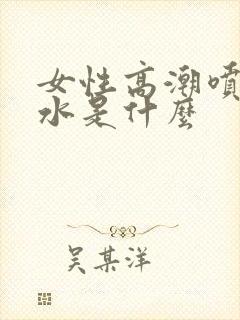 女性高潮噴
水是什麼
吴某洋